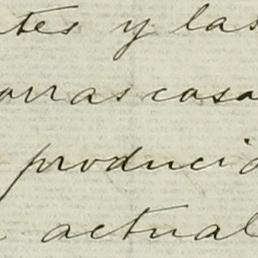 tes y las
orras casa
producid
actual